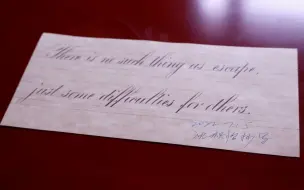 There is no such thing as escape,
just some difficulties for others.